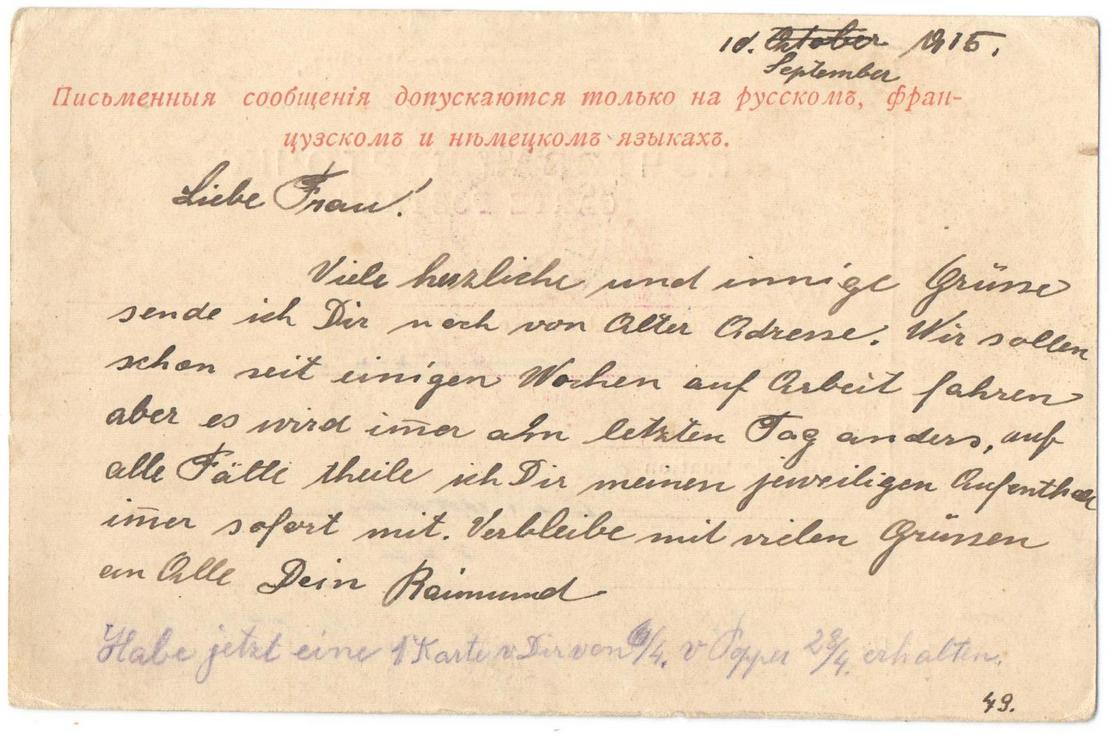 10. Oktober 1915.
September
Письменныя сообщенія допускаются только на русскомъ, фран-
цузскомъ и нѣмецкомъ языкахъ.
Liebe Frau!
Viele herzliche und innige Grüsse
sende ich Dir noch von Alter Adresse. Wir sollen
schon seit einigen Wochen auf Arbeit fahren
aber es wird im̅er am letzten Tag anders, auf
alle Fälle theile ich Dir meinen jeweiligen Aufenthalt
im̅er sofort mit. Verbleibe mit vielen Grüssen
an Alle Dein Raimund
Habe jetzt eine 1 Karte v Dir von /4. v Popper 28/4. erhalten.
49.